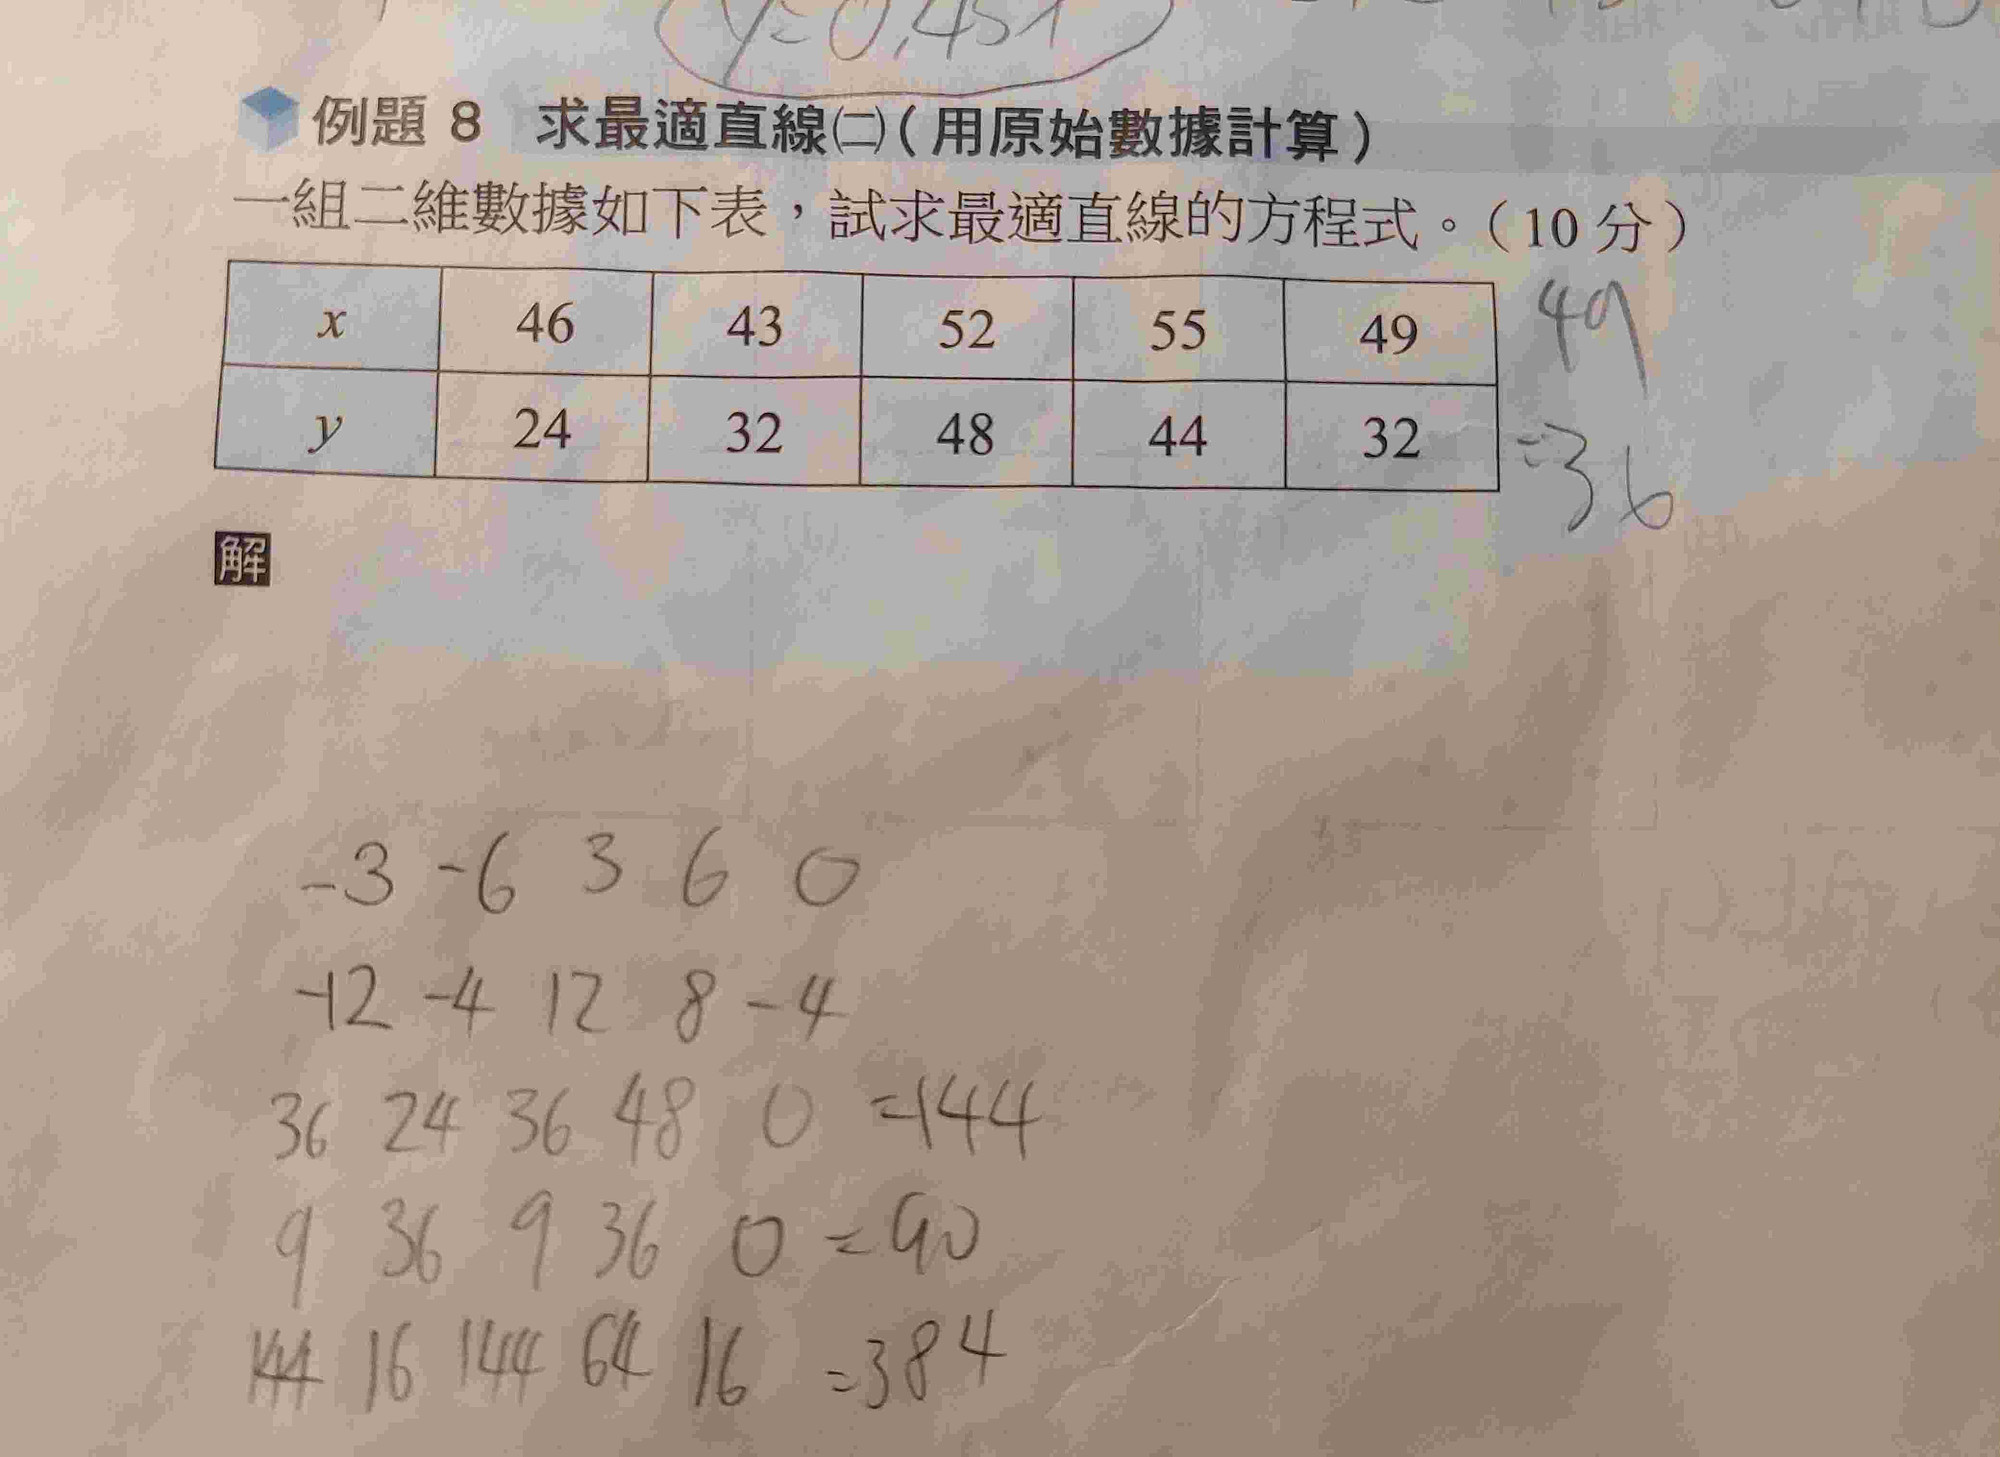 y=0.451
例題 8 求最適直線㈡(用原始數據計算)
一組二維數據如下表，試求最適直線的方程式。(10 分)
x 46 43 52 55 49 49
y 24 32 48 44 32 =36
解
-3 -6 3 6 0
-12 -4 12 8 -4
36 24 36 48 0 =144
9 36 9 36 0 =90
144 16 144 64 16 =384